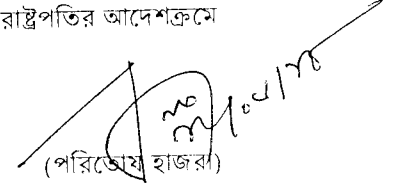 রাষ্ট্রপতির আদেশক্রমে
(পরিতোষ হাজরা)